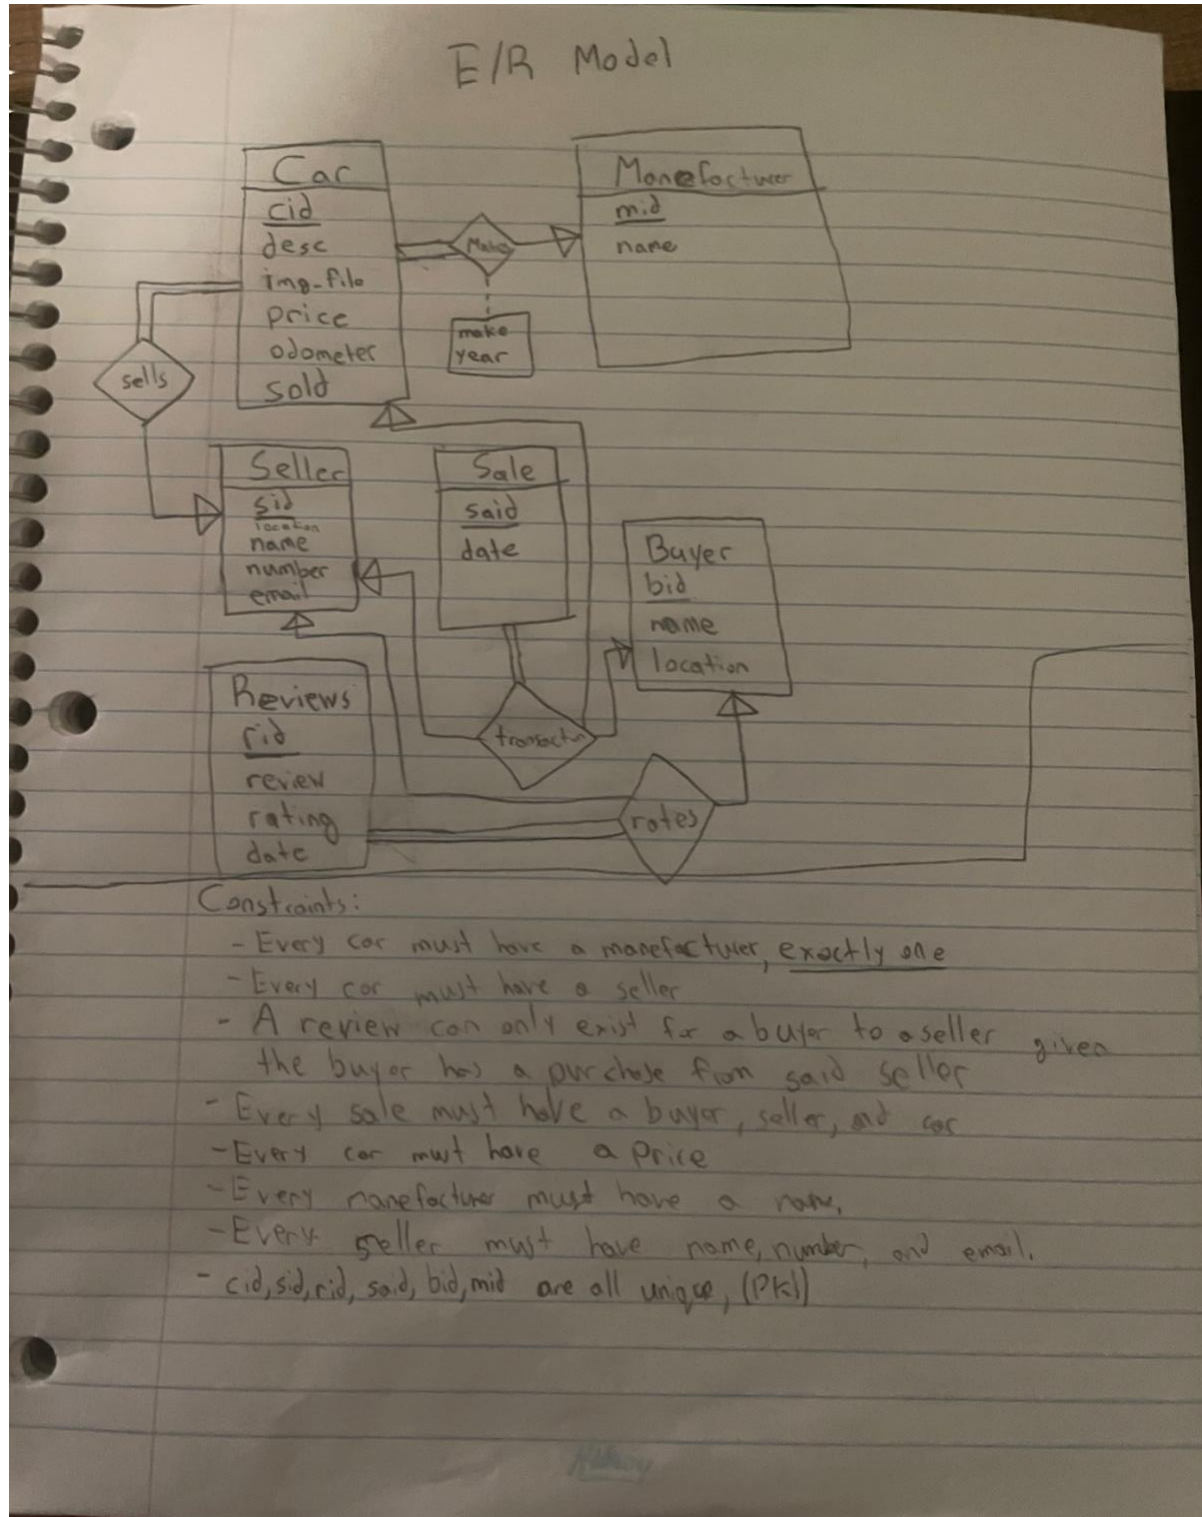 E/R Model
Car
cid
desc
img_file
price
odometer
sold
Make
make
year
Manefacturer
mid
name
sells
Seller
sid
location
name
number
email
Sale
said
date
Buyer
bid
name
location
transaction
Reviews
rid
review
rating
date
rates
Constraints:
- Every car must have a manefacturer, exactly one
- Every car must have a seller
- A review can only exist for a buyer to a seller given
the buyer has a purchase from said seller
- Every sale must have a buyer, seller, and car
- Every car must have a price
- Every manefacturer must have a name.
- Every seller must have name, number, and email.
- cid, sid, rid, said, bid, mid are all unique, (PK!)